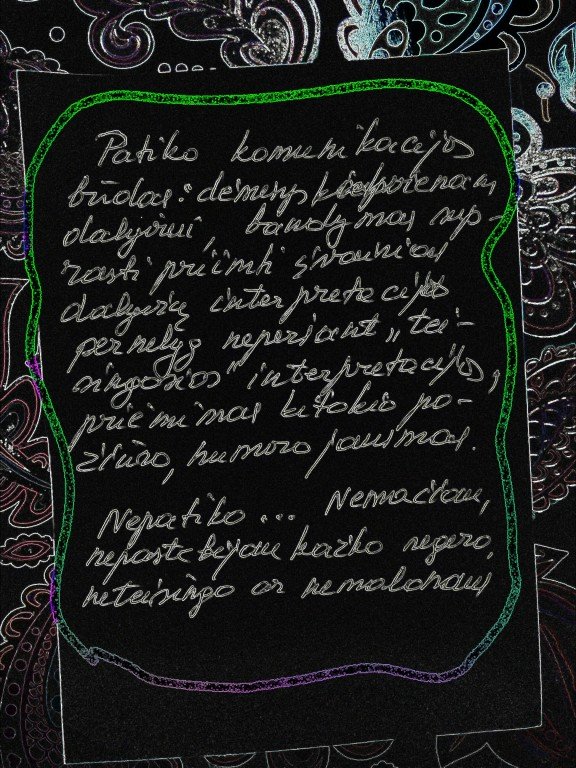 Patiko komunikacijos
būdas: dėmesys kiekvienam
dalyviui, bandymas sup-
rasti priimti įvairias
dalyvių interpretacijas
pernelyg neperšant „tei-
singosios" interpretacijos,
priėmimas kitokio po-
žiūrio, humoro jausmas.
Nepatiko ... Nemačiau,
nepastebėjau kažko negero,
neteisingo ar nemalonaus